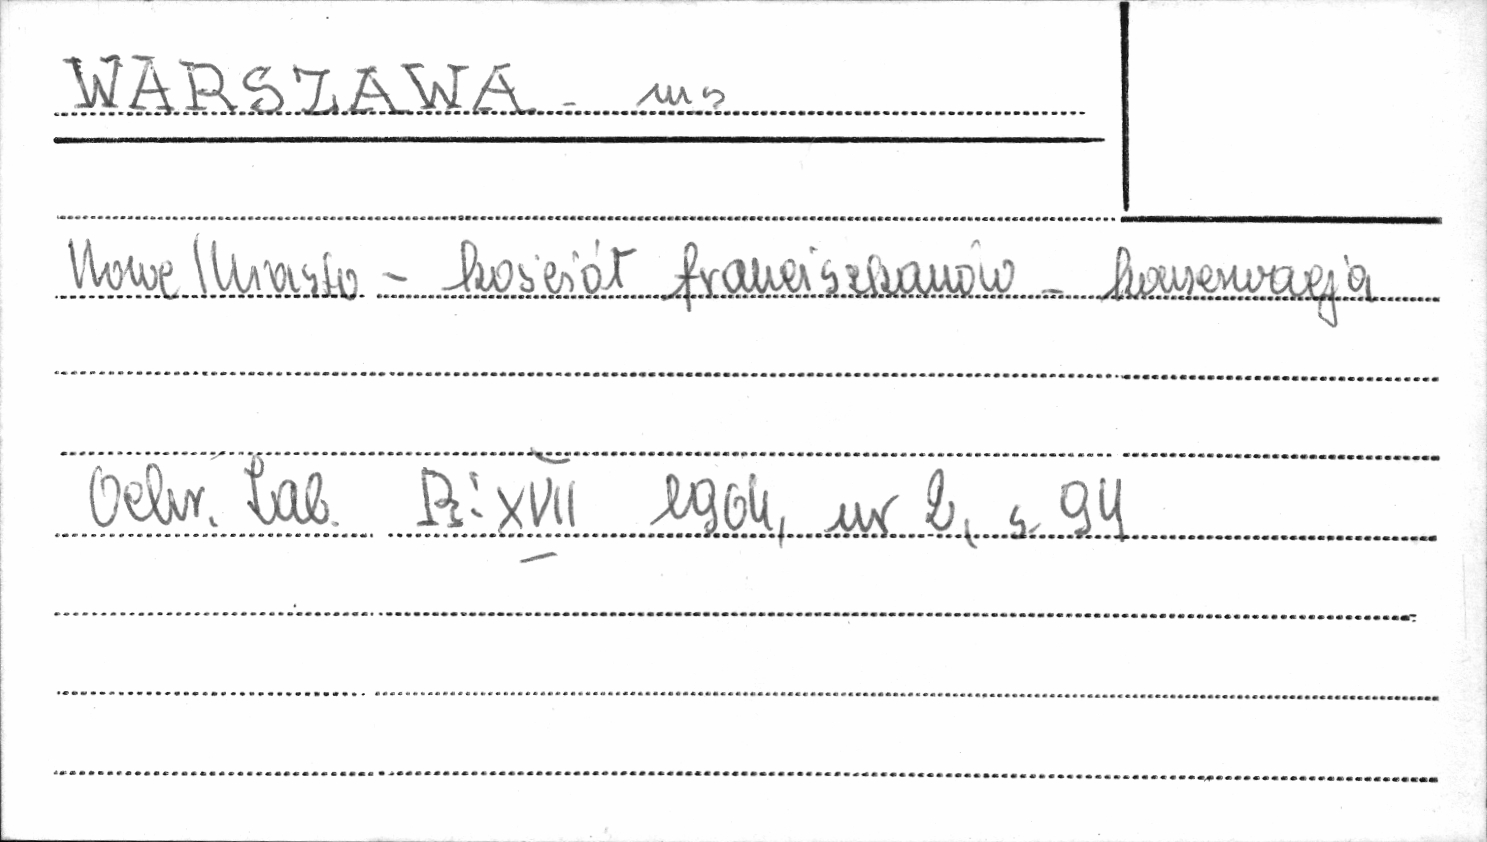 WARSZAWA - m.
Nowe Miasto - kościół franciszkanów - konserwacja
Ochr. Zab. R: XVII 1964, nr 2, s. 94